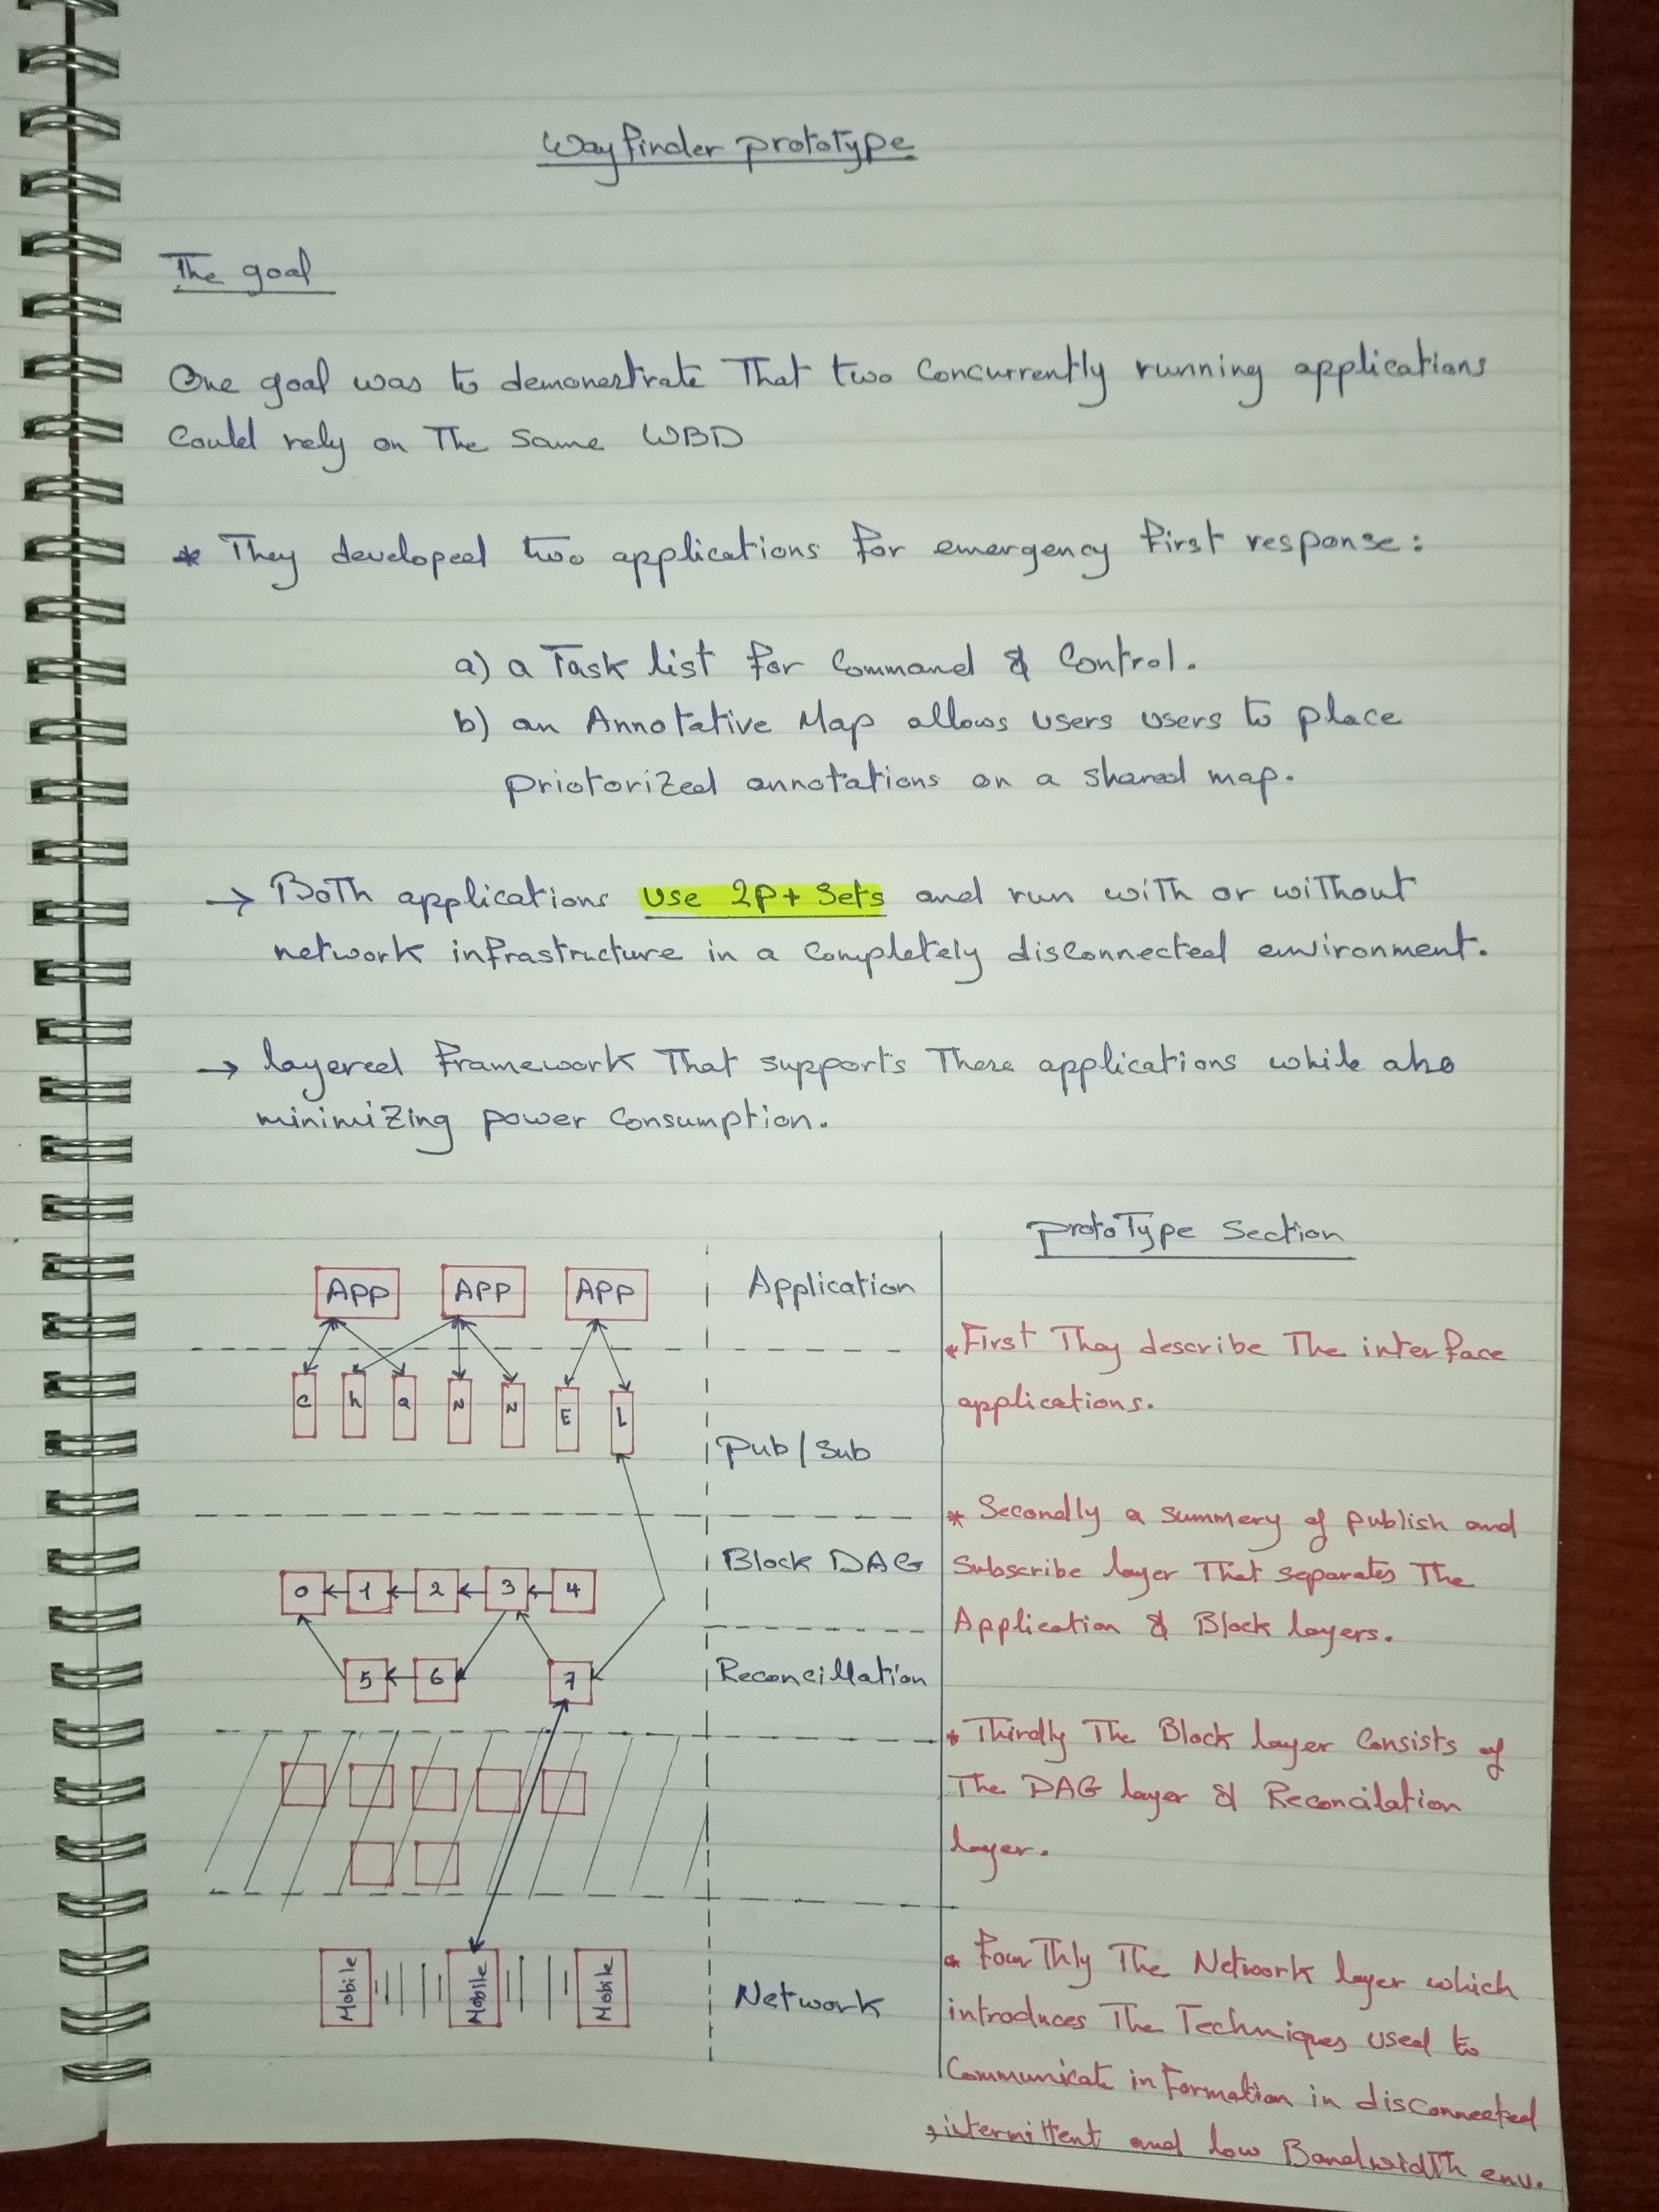 Wayfinder prototype
The goal
One goal was to demonestrate That two Concurrently running applications
Could rely on The same WBD
* They developed two applications for emergency first response:
a) a Task list for Command & Control.
b) an Annotative Map allows users users to place
priotorized annotations on a shared map.
→ Both applications use 2P+ Sets and run with or without
network infrastructure in a Completely disconnected environment.
→ layered Framework That supports These applications while also
minimizing power Consumption.
Prototype Section
APP APP APP
Application
* First They describe The interface
applications.
c h a N N E L
Pub/Sub
* Secondly a summery of publish and
Subscribe layer That separates The
Application & Block layers.
Block DAG
0 1 2 3 4
Reconcillation
5 6 7
* Thirdly The Block layer Consists of
The DAG layer & Reconcilation
layer.
Mobile Mobile Mobile
Network
* Fourthly The Network layer which
introduces The Techniques used to
Communicate information in disconnected
, intermittent and low Bandwidth env.